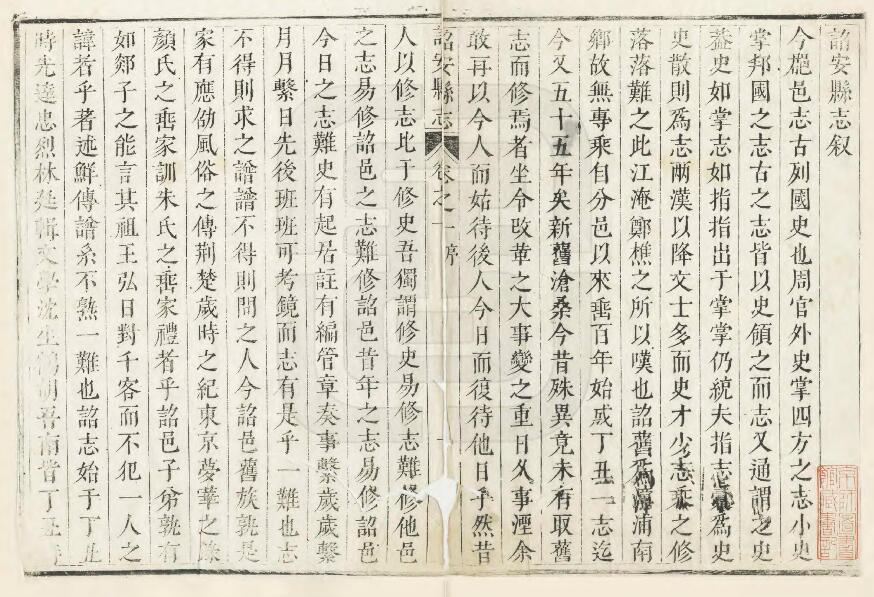 詔安縣志叙
今巵邑志古列國史也周官外史掌四方之志小史
掌邦國之志古之志皆以史領之而志又通謂之史
蓋史如掌志如指指出于掌掌仍統夫指志爲史
史散則爲志兩漢以降文士多而史才少志乗之修
落落難之此江淹鄭樵之所以嘆也詔舊漳浦南
鄉故無專乘自分邑以來垂百年始成丁丑一志迄
今又五十五年矣新舊滄桑今昔殊異竟未有取舊
志而修焉者坐令攺革之大事變之重日久事湮余
敢再以今人而姑待後人今日而復待他日乎然昔
詔安縣志 卷之一 序 一
人以修志比于修史吾獨謂修史易修志難修他邑
之志易修詔邑之志難修詔邑昔年之志易修詔邑
今日之志難史有起居註有編管章奏事繫歲歲繫
月月繫日先後班班可考鏡而志有是乎一難也志
不得則求之譜譜不得則問之人今詔邑舊族孰是
家有應劭風俗之傳荆楚歲時之紀東京夢華之錄
顏氏之垂家訓朱氏之垂家禮者乎詔邑子弟孰有
如郯子之能言其祖王弘日對千客而不犯一人之
諱者乎著述鮮傳譜系不熟一難也詔志始于丁丑
時先達忠烈林 輯文學沈生 胡 南皆丁丑